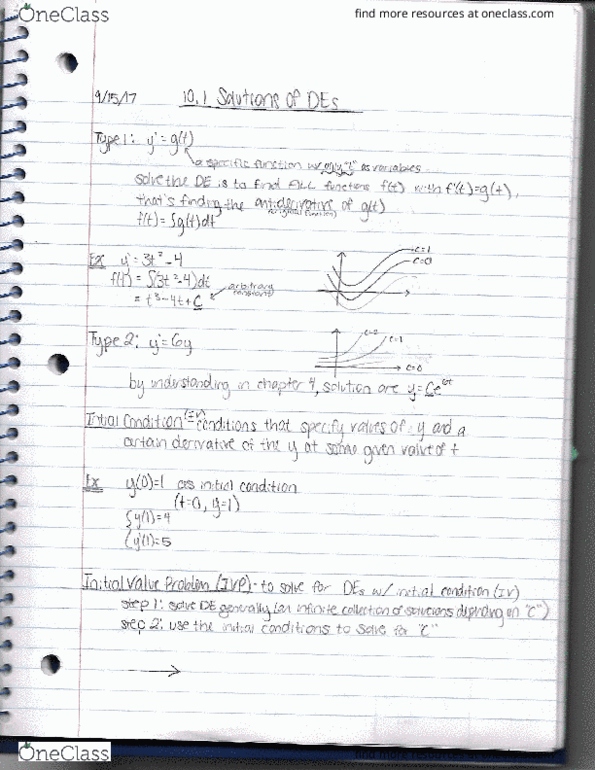 OneClass
find more resources at oneclass.com
9/15/17 10.1 Solutions of DEs
Type 1: y' = g(t)
a specific function w/ only "t" as variables
solve the DE is to find ALL functions f(t) with f'(t)=g(t),
that's finding the antiderivative of g(t)
(original function)
f(t) = ∫g(t)dt
Ex y' = 3t² - 4
f(t) = ∫(3t² - 4)dt
= t³ - 4t + C
arbitrary constant
C=1
C=0
Type 2: y' = 6y
C=2
C=1
C=0
by understanding in chapter 4, solution are y = Ce
Initial Condition (IV) - conditions that specify values of y and a
certain derivative of the y at some given value of t
Ex y(0)=1 as initial condition
(t=0, y=1)
{ y(1)=4
{ y'(1)=5
Initial Value Problem (IVP) - to solve for DEs w/ initial condition (IV)
step 1: solve DE generally (an infinite collection of solutions depending on "C")
step 2: use the initial conditions to solve for "C"
OneClass
find more resources at oneclass.com